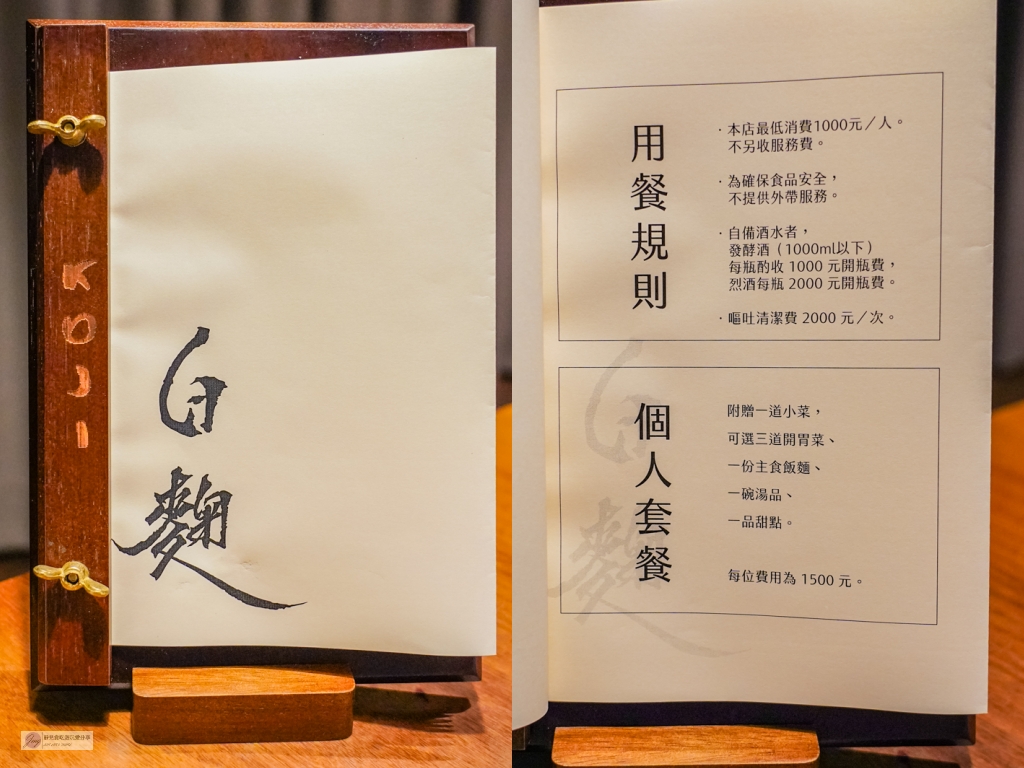 KOJI
白麴
用餐規則
·本店最低消費1000元／人。
不另收服務費。
·為確保食品安全，
不提供外帶服務。
·自備酒水者，
發酵酒（1000ml以下）
每瓶酌收 1000 元開瓶費，
烈酒每瓶 2000 元開瓶費。
·嘔吐清潔費 2000 元／次。
個人套餐
附贈一道小菜，
可選三道開胃菜、
一份主食飯麵、
一碗湯品、
一品甜點。
每位費用為 1500 元。